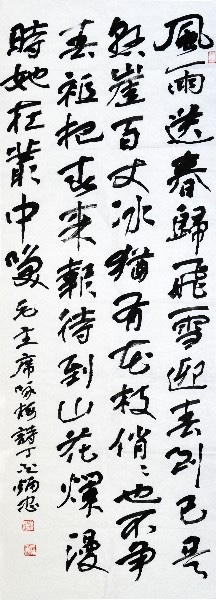 風雨送春歸飛雪迎春到已是
懸崖百丈冰猶有花枝俏〻也不争
春祗把春来報待到山花爛漫
時她在叢中咲 毛主席咏梅詩丁巳炳